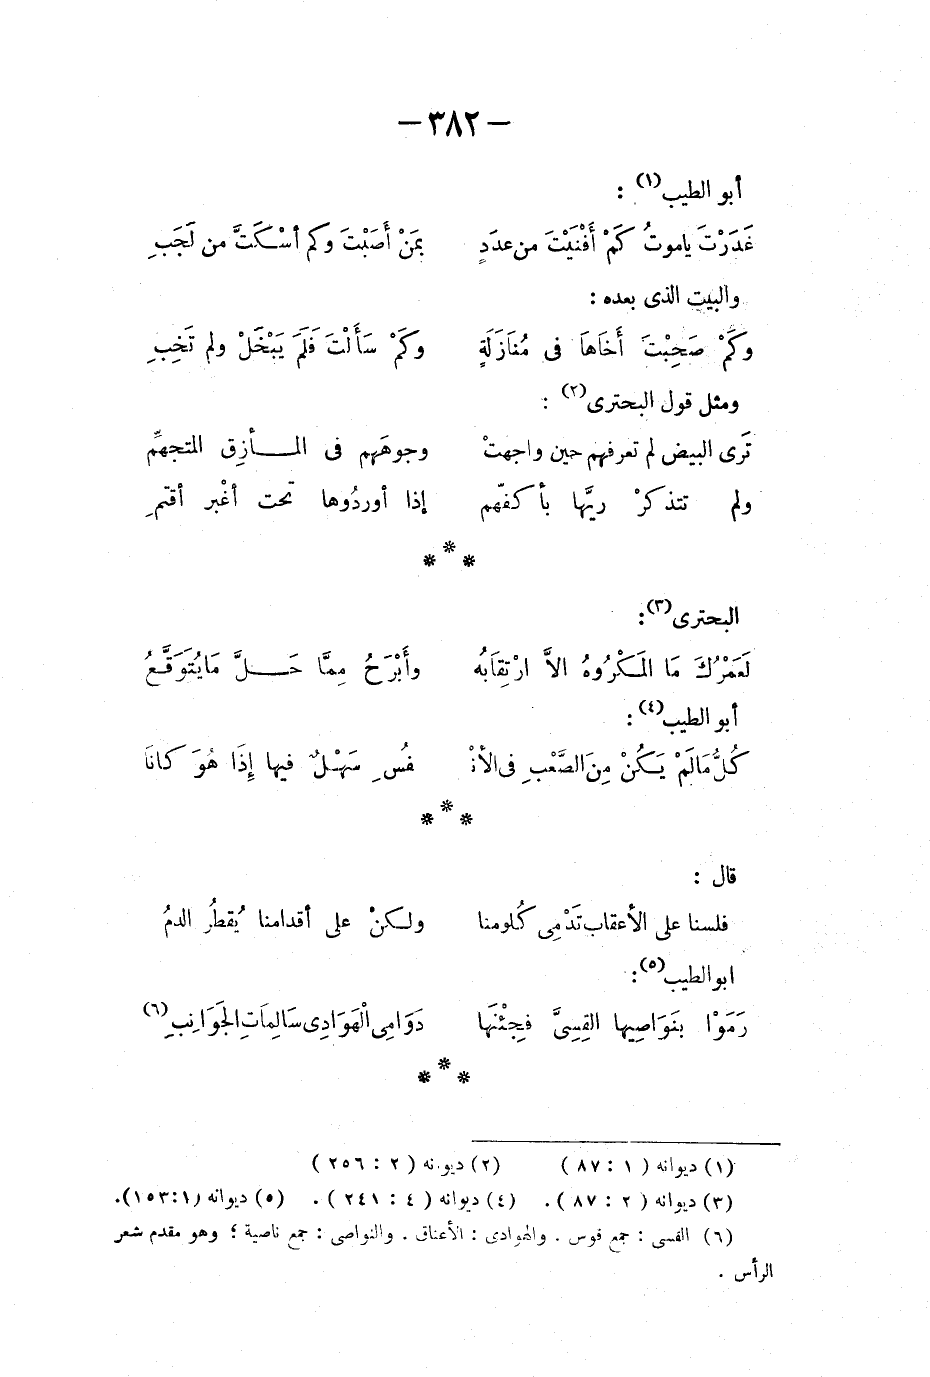 — ٣٨٢ —
أبو الطيب(١) :
غَدَرْتَ ياموتُ كَمْ أَفْنَيْتَ من عدَدٍ بمَنْ أَصَبْتَ وكم أسْكَتَّ من لَجَبِ
والبيت الذى بعده :
وكَمْ صَحِبْتَ أَخَاهَا فى مُنَازَلَةٍ وكَمْ سَأَلْتَ فَلَمَ يَبْخَلْ ولم تَخِبِ
ومثل قول البحترى(٢) :
تَرى البيض لم تعرفهم حين واجهتْ وجوهَهم فى المـأزِق المتجهمِّ
ولم تتذكرْ ريَّها بأكفّهم إذا أوردُوها تحت أغْبر أقتمِ
* * *
البحترى(٣):
لَعَمْرُكَ مَا المَكْرُوهُ الاَّ ارْتِقَابُه وأَبْرَحُ مِمَّا حَـلَّ مَايُتَوَقَّعُ
أبو الطيب(٤) :
كُلُّ مَالَمْ يَكُنْ مِنَ الصَّعْبِ فى الأنْـ فُسِ سَهْلٌ فيها إِذَا هُوَ كانَا
* * *
قال :
فلسنا على الأعقاب تَدْمِى كُلومنا ولكنْ على أقدامنا يُقطُر الدمُ
ابو الطيب(٥):
رَمَوْا بنَوَاصِيها القِسِىَّ فجِئْنَها دَوَامِى الْهَوَادِى سَالِمَاتِ الجَوَانِبِ(٦)
* * *
(١) ديوانه ( ١ : ٨٧ ) (٢) ديوانه ( ٢ : ٢٥٦ )
(٣) ديوانه ( ٢ : ٨٧ ) . (٤) ديوانه ( ٤ : ٢٤١ ) . (٥) ديوانه (١:١٥٣).
(٦) القسى : جمع قوس . والهوادى : الأعناق . والنواصى : جمع ناصية ؛ وهو مقدم شعر
الرأس .